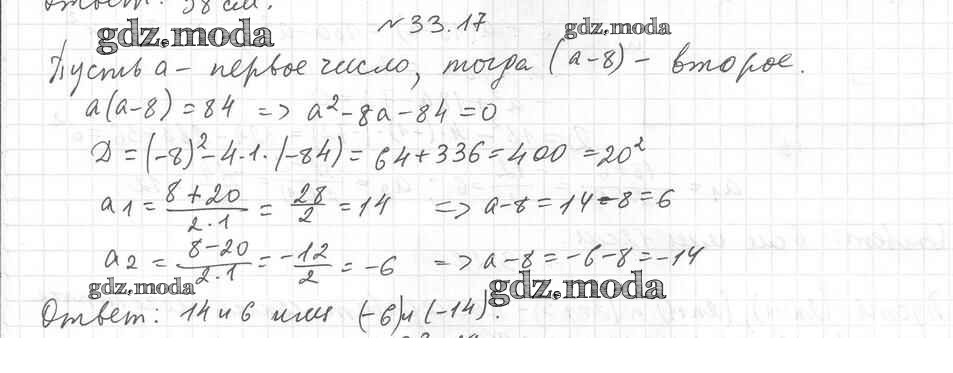 Ответ: 58 см.
№ 33.17
gdz.moda gdz.moda
Пусть a – первое число, тогда (a-8) – второе.
a(a-8) = 84 => a²-8a-84=0
D = (-8)²-4·1·(-84) = 64+336=400 =20²
a1 = 8+20/2·1 = 28/2 = 14 => a-8 = 14-8 = 6
a2 = 8-20/2·1 = -12/2 = -6 => a-8 = -6-8 = -14
gdz.moda gdz.moda
Ответ: 14 и 6 или (-6) и (-14).